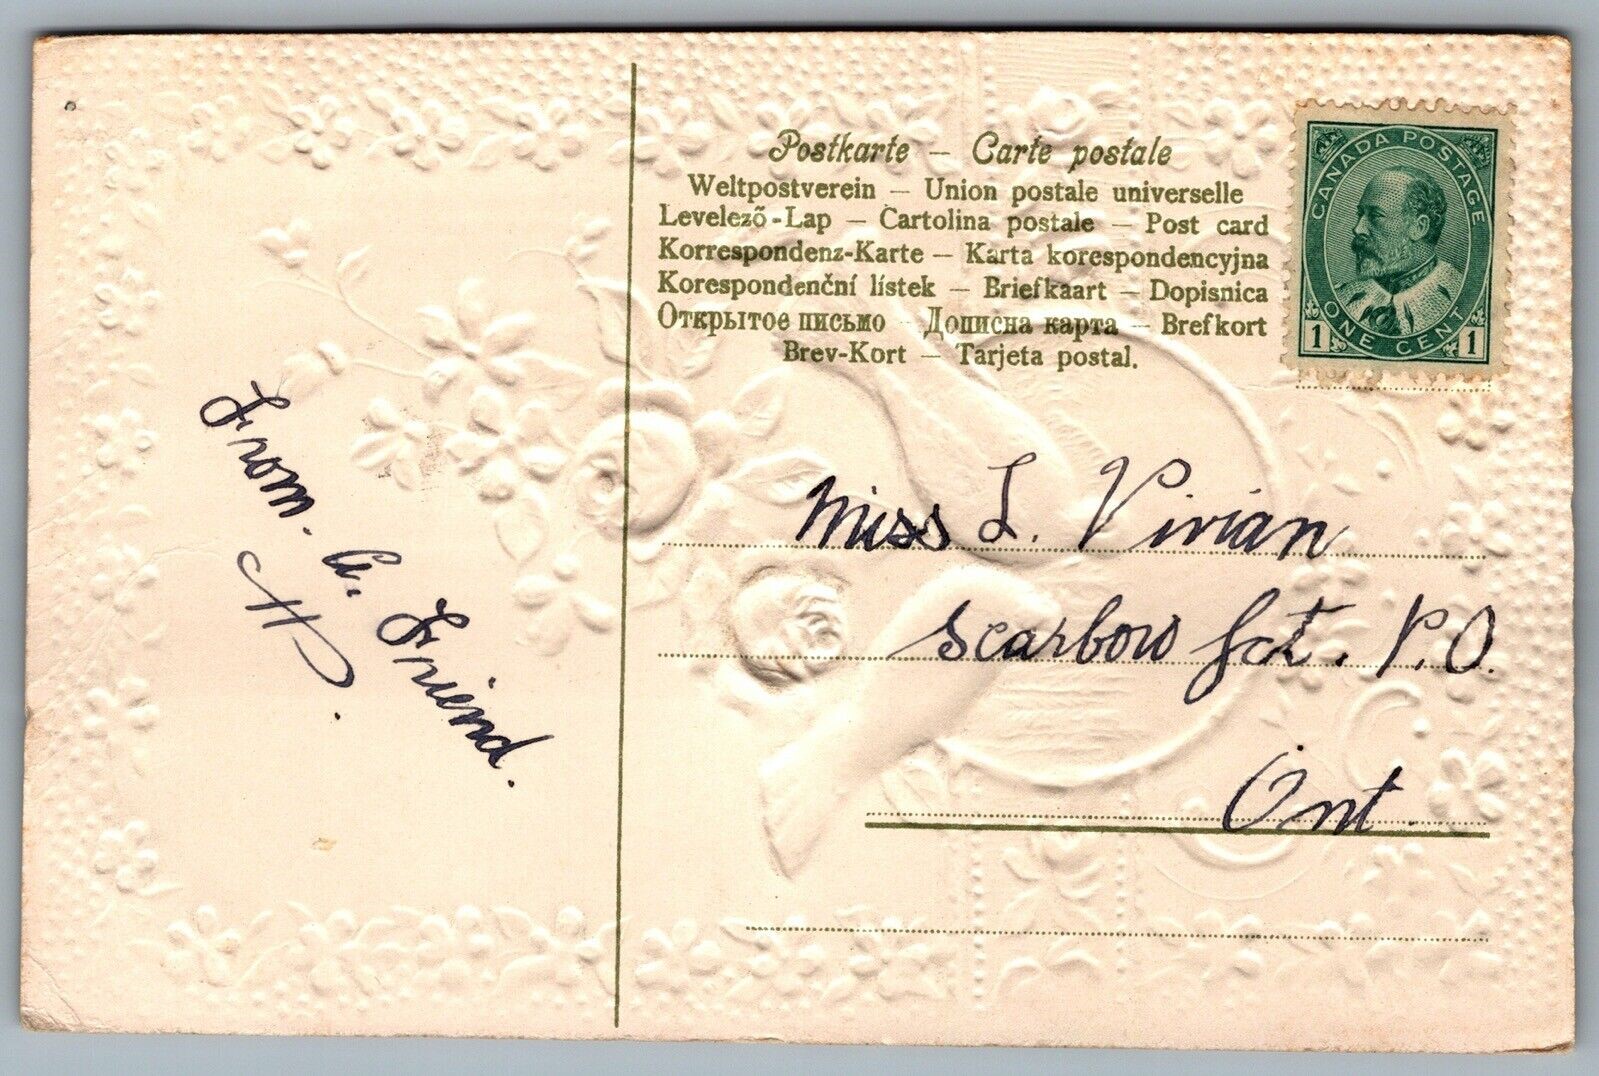 Postkarte – Carte postale
Weltpostverein – Union postale universelle
Levelező-Lap – Cartolina postale – Post card
Korrespondenz-Karte – Karta korespondencyjna
Korespondenční lístek – Briefkaart – Dopisnica
Открытое письмо – Дописна карта – Brefkort
Brev-Kort – Tarjeta postal.
CANADA POSTAGE
1 ONE CENT 1
From. A. Friend.
Miss L. Vivian
Scarboro Jct. P.O.
Ont.